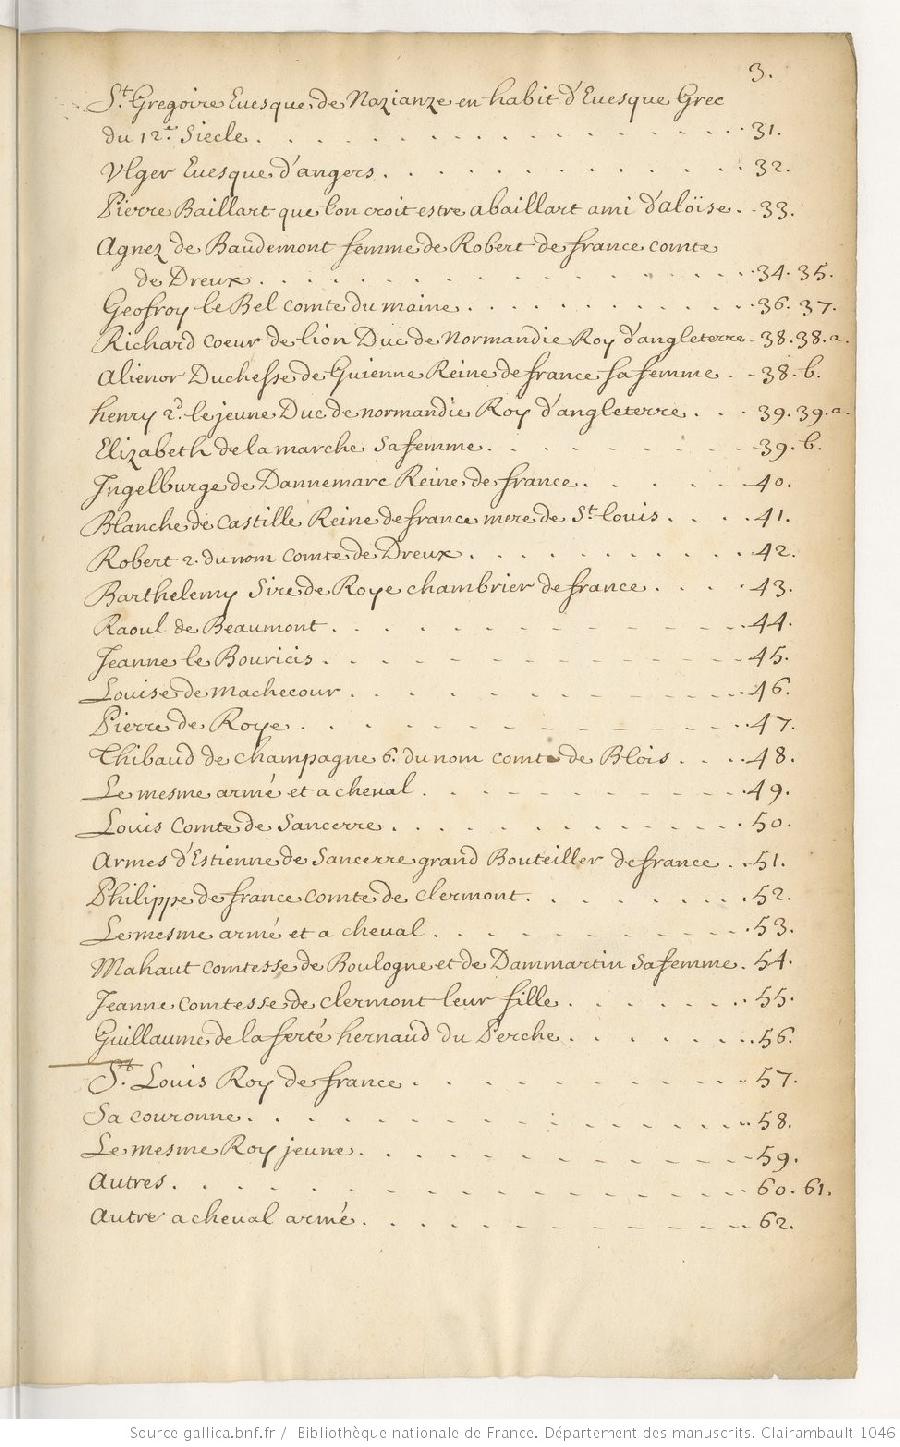 3.
St. Gregoire Euesque de Nazianze en habit d'Euesque Grec
du 12.e Siecle. . . . . . . . . . . . . . . . . 31.
Vlger Euesque d'angers. . . . . . . . . . . . 32.
Pierre Baillart que lon croit estre abaillart ami d'aloïse. . 33.
Agnez de Baudemont femme de Robert de france comte
de Dreux. . . . . . . . . . . . . . . . 34. 35.
Geofroy le Bel comte du maine. . . . . . . . . . 36. 37.
Richard coeur de lion Duc de Normandie Roy d'angleterre. 38. 38. a.
Alienor Duchesse de Guienne Reine de france sa femme. . 38. b.
henry 2d. le jeune Duc de normandie Roy d'angleterre. . . 39. 39. a.
Elizabeth de la marche sa femme. . . . . . . . . 39. b.
Ingelburge de Dannemarc Reine de france. . . . . . 40.
Blanche de Castille Reine de france mere de St. louis. . . . 41.
Robert 2. du nom comte de Dreux. . . . . . . . . . 42.
Barthelemy Sire de Roye chambrier de france. . . . 43.
Raoul de Beaumont. . . . . . . . . . . . . . 44.
Jeanne le Bouricis. . . . . . . . . . . . . . 45.
Louise de machecour. . . . . . . . . . . . . 46.
Pierre de Roye. . . . . . . . . . . . . . . 47.
Thibaud de champagne 6. du nom comte de Blois. . . . 48.
Le mesme armé et a cheval. . . . . . . . . . . 49.
Louis Comte de Sancerre. . . . . . . . . . . . 50.
Armes d'Estienne de Sancerre grand Bouteiller de france. . 51.
Philippe de france comte de clermont. . . . . . . . 52.
Le mesme armé et a cheval. . . . . . . . . . . 53.
Mahaut comtesse de Boulogne et de Dammartin sa femme. 54.
Jeanne comtesse de clermont leur fille. . . . . . . 55.
Guillaume de la ferté hernaud du Perche. . . . . . . 56.
St. Louis Roy de france. . . . . . . . . . . . 57.
Sa couronne. . . . . . . . . . . . . . . . 58.
Le mesme Roy jeune. . . . . . . . . . . . . 59.
Autres. . . . . . . . . . . . . . . . . 60. 61.
Autre a cheval armé. . . . . . . . . . . . . 62.
Source gallica.bnf.fr / Bibliothèque nationale de France. Département des manuscrits. Clairambault 1046